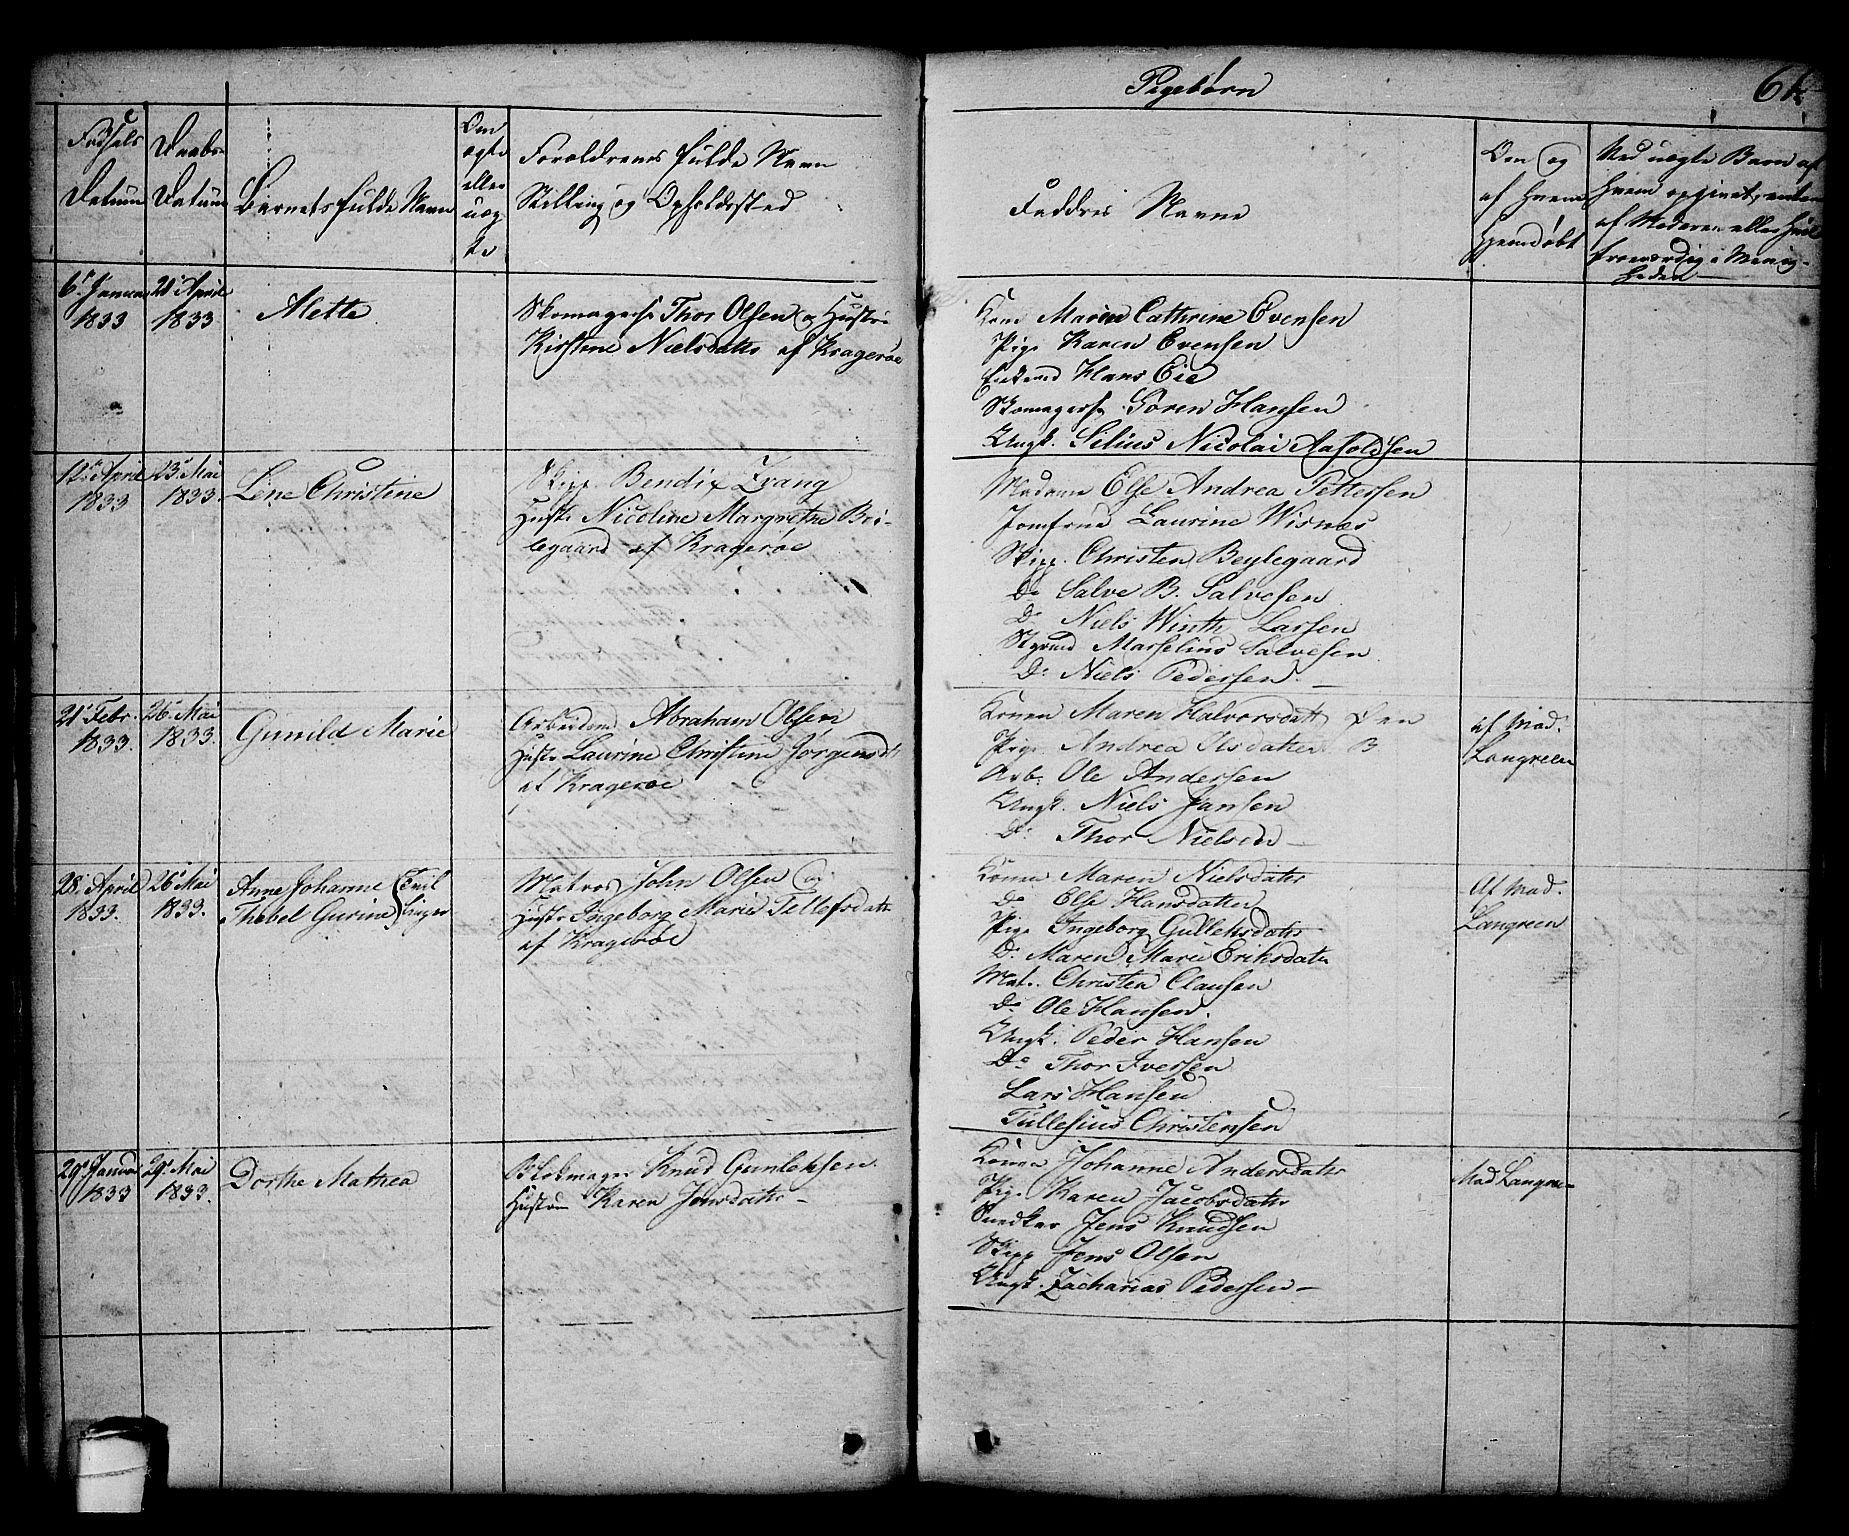 Pigebørn
Fødsels Datum
Daabs Datum
Barnets fulde Navn
Om ægte eller uægte
Forældrenes fulde Navn
Stilling og Opholdssted
Faddres Navne
Om og af hvem hjemdøbt
Ved uægte Barn af
hvem opgivet, enten
af Moderen eller
troværdig i Menig-
heden
6te Januar 1833
21de April 1833
Mette
Skomagers. Thor Olsen og Hustru
Kirstene Nielsdatr af Kragerøe
Kone Maren Cathrine Evensen
Pige Karen Evensen
Hans Eie
Skomagers. Søren Hansen
Ungk. Silius Nicolai Aasoldsen
12te April 1833
23de Mai 1833.
Lene Christine
Skipp. Bendix Zrang
Hustr Nicoline Margrethe Bei-
legaard af Kragerøe
Madame Else Andrea Pettersen
Jomfrue Laurine Wisnæs
Skipp. Christen Beylegaard
Do Salve B. Salvesen
Do Niels Winth Larsen
Styrmd Marselius Salvesen
Do Niels Pedersen. —
21de Febr. 1833.
26de Mai 1833.
Gunild Marie
Arbeidsm. Abraham Olsen
Hustr Laurine Christine Jørgensdt
af Kragerøe
Konen Maren Halvorsdatt
Pige Andrea Olsdatter
Arb. Ole Andersen
Ungk. Niels Jansen
Do Thor Nielsen —
af Mad.
Langreen
28de April 1833.
26de Mai 1833.
Anne Johanne
Thabel Gurine
Tvillinger
Matros John Olsen og
Hustr Ingeborg Marie Tellefsdatr
af Kragerøe
Konen Maren Nielsdatr
Do Else Hansdatter
Pige Ingeborg Gulleksdatr
Do Maren Marie Eriksdatr
Mat. Christen Clausen
Do Ole Hansen.
Ungk. Peder Hansen
Do Thor Iversen
Lars Hansen
Tullesius Christensen
Af Mad.
Langreen
29de Januar 1833
29de Mai 1833.
Dorthe Mathea
Blokmager Knud Gunleksen
Hustru Karen Jonsdatr —
Konen Johanne Andersdatr
Pige Karen Jacobsdatr
Snedker Jens Knudsen
Skipp Jens Olsen
Ungk. Zacharias Pedersen —
Mad Langreen